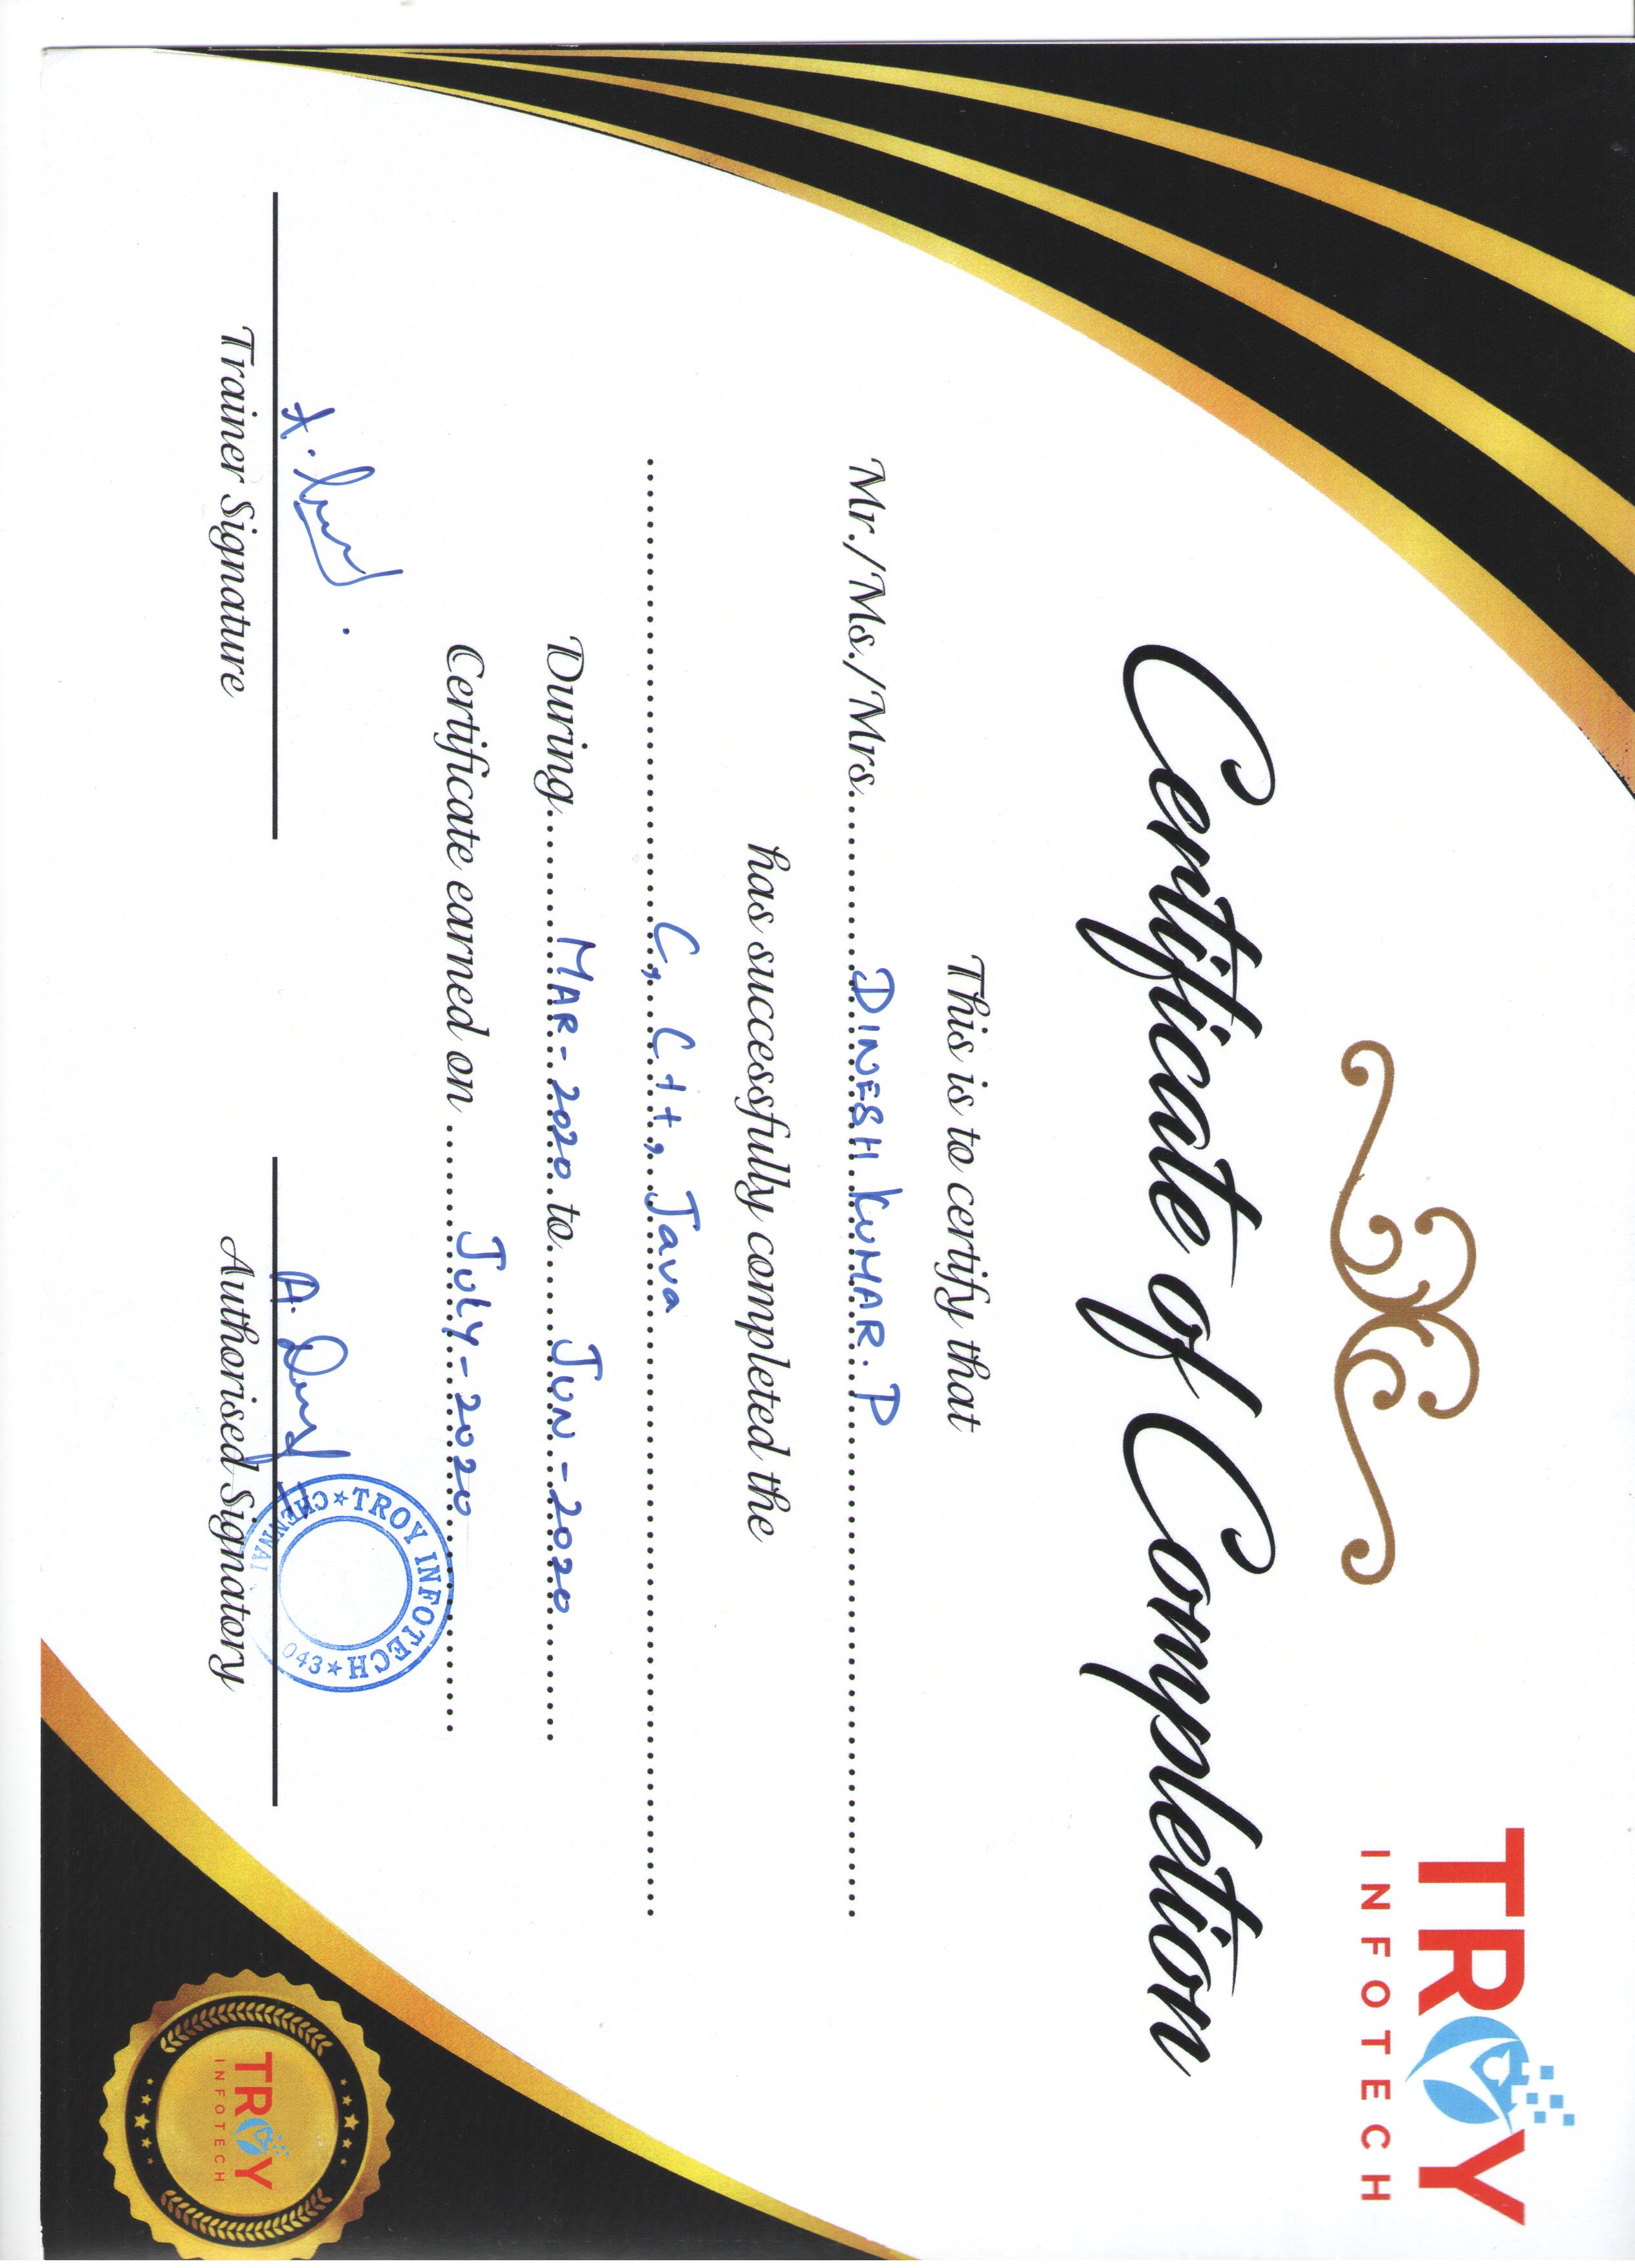 TROY
INFOTECH
Certificate of Completion
This is to certify that
Mr./Ms./Mrs. DINESH KUMAR. P
has successfully completed the
C, C++, Java
During MAR-2020 to JUN-2020
Certificate earned on JULY-2020
TROY INFOTECH
CHENNAI
043
Trainer Signature
Authorised Signatory
TROY
INFOTECH